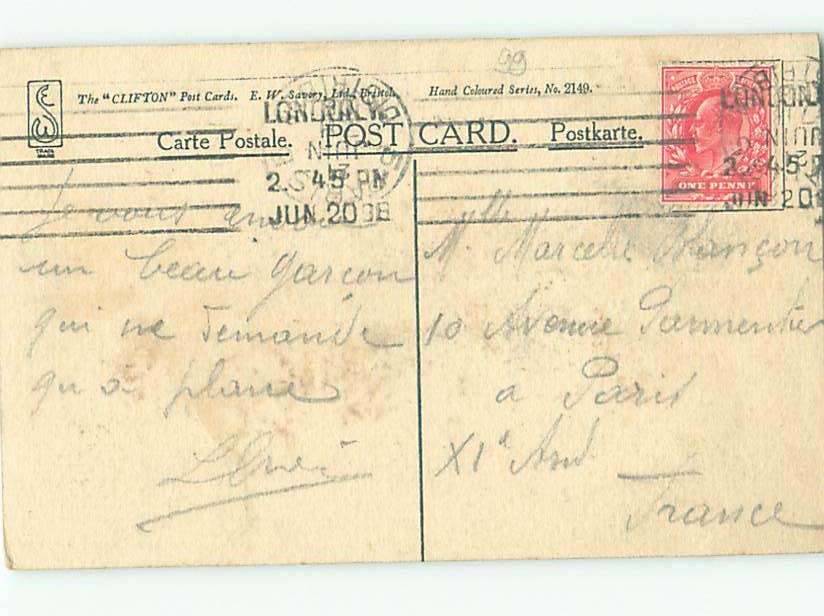 99
The "CLIFTON" Post Cards. E. W. Savory, Ltd., Bristol. Hand Coloured Series, No. 2149.
TRADE MARK
Carte Postale. POST CARD. Postkarte.
LONDON.W
2.45 PM
JUN 20 08
LONDON
2.45 P
JUN 20
ONE PENNY
Je vous
un beau garcon
qui ne demande
qu a plaire
Mlle Marcelle Blançon
10 Avenue Parmentier
a Paris
XIe Arrd
France